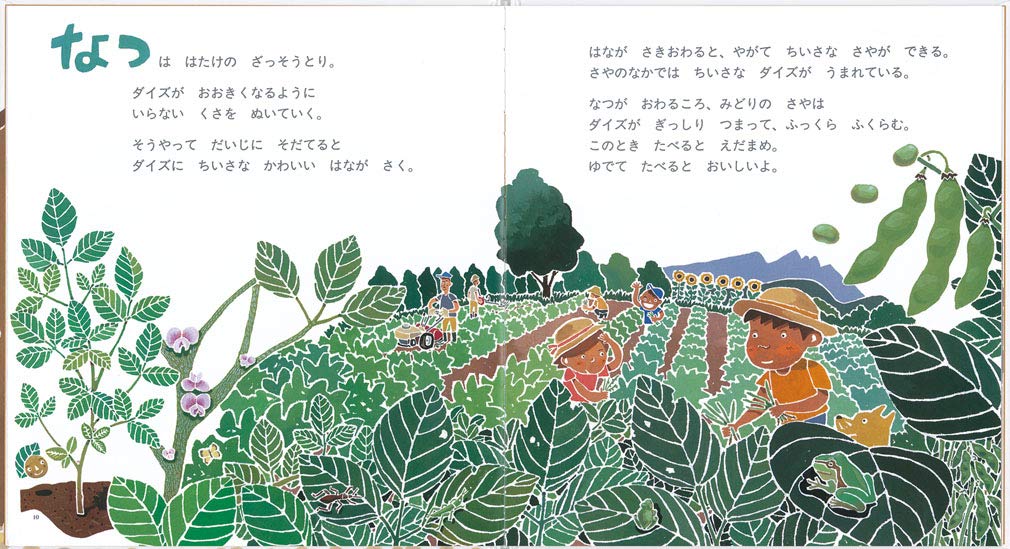 なつは　はたけの　ざっそうとり。
ダイズが　おおきくなるように
いらない　くさを　ぬいていく。
そうやって　だいじに　そだてると
ダイズに　ちいさな　かわいい　はなが　さく。
はなが　さきおわると、やがて　ちいさな　さやが　できる。
さやのなかでは　ちいさな　ダイズが　うまれている。
なつが　おわるころ、みどりの　さやは
ダイズが　ぎっしり　つまって、ふっくら　ふくらむ。
このとき　たべると　えだまめ。
ゆでて　たべると　おいしいよ。
10